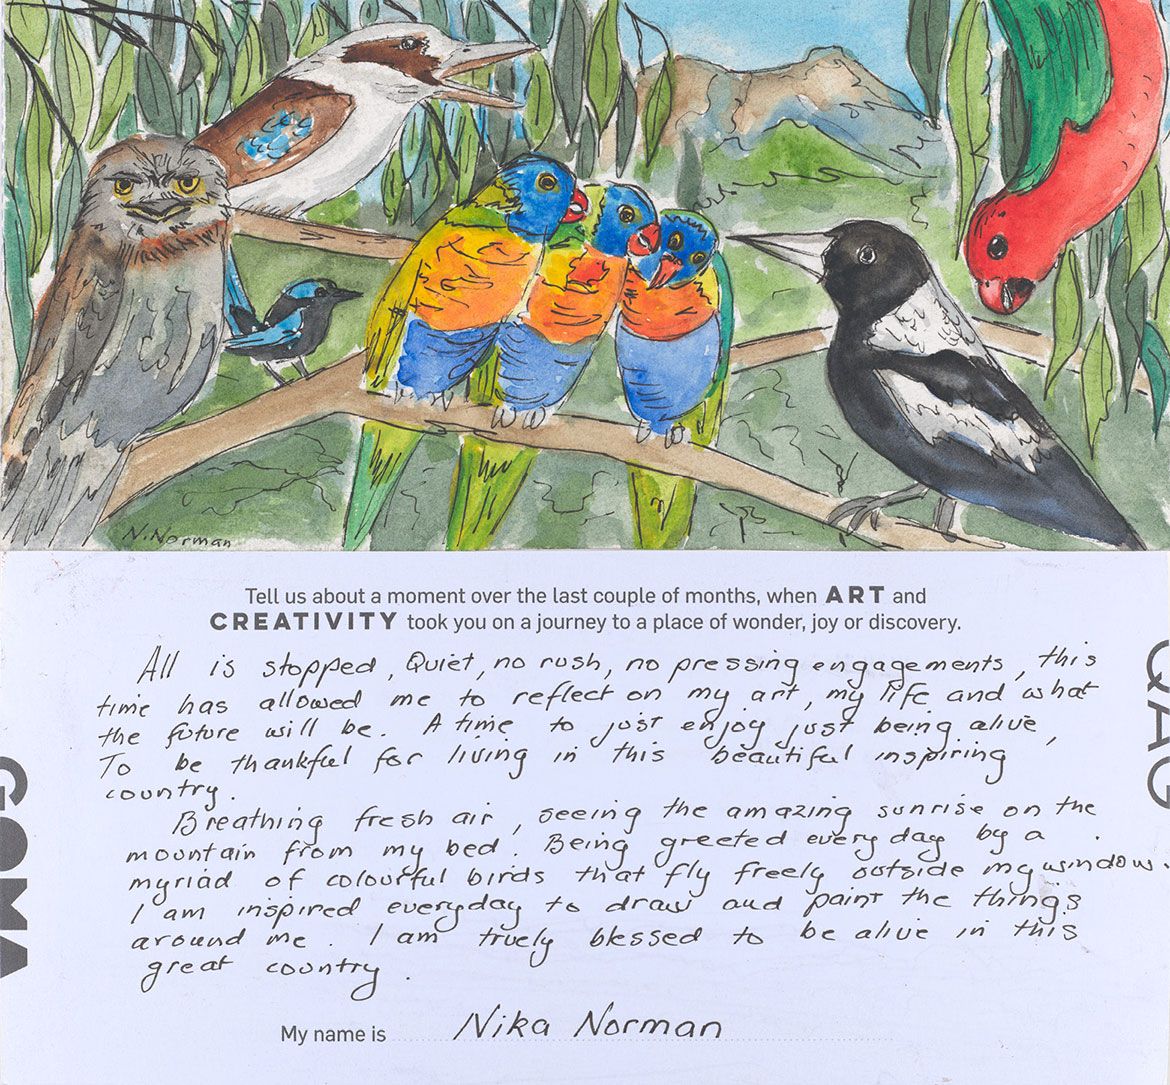 N. Norman
Tell us about a moment over the last couple of months, when ART and
CREATIVITY took you on a journey to a place of wonder, joy or discovery.
All is stopped, Quiet, no rush, no pressing engagements, this
time has allowed me to reflect on my art, my life and what
the future will be. A time to just enjoy just being alive,
To be thankful for living in this beautiful inspiring
country.
Breathing fresh air, seeing the amazing sunrise on the
mountain from my bed. Being greeted every day by a
myriad of colourful birds that fly freely outside my window.
I am inspired everyday to draw and paint the things
around me. I am truely blessed to be alive in this
great country.
My name is Nika Norman
GOMA
QAG